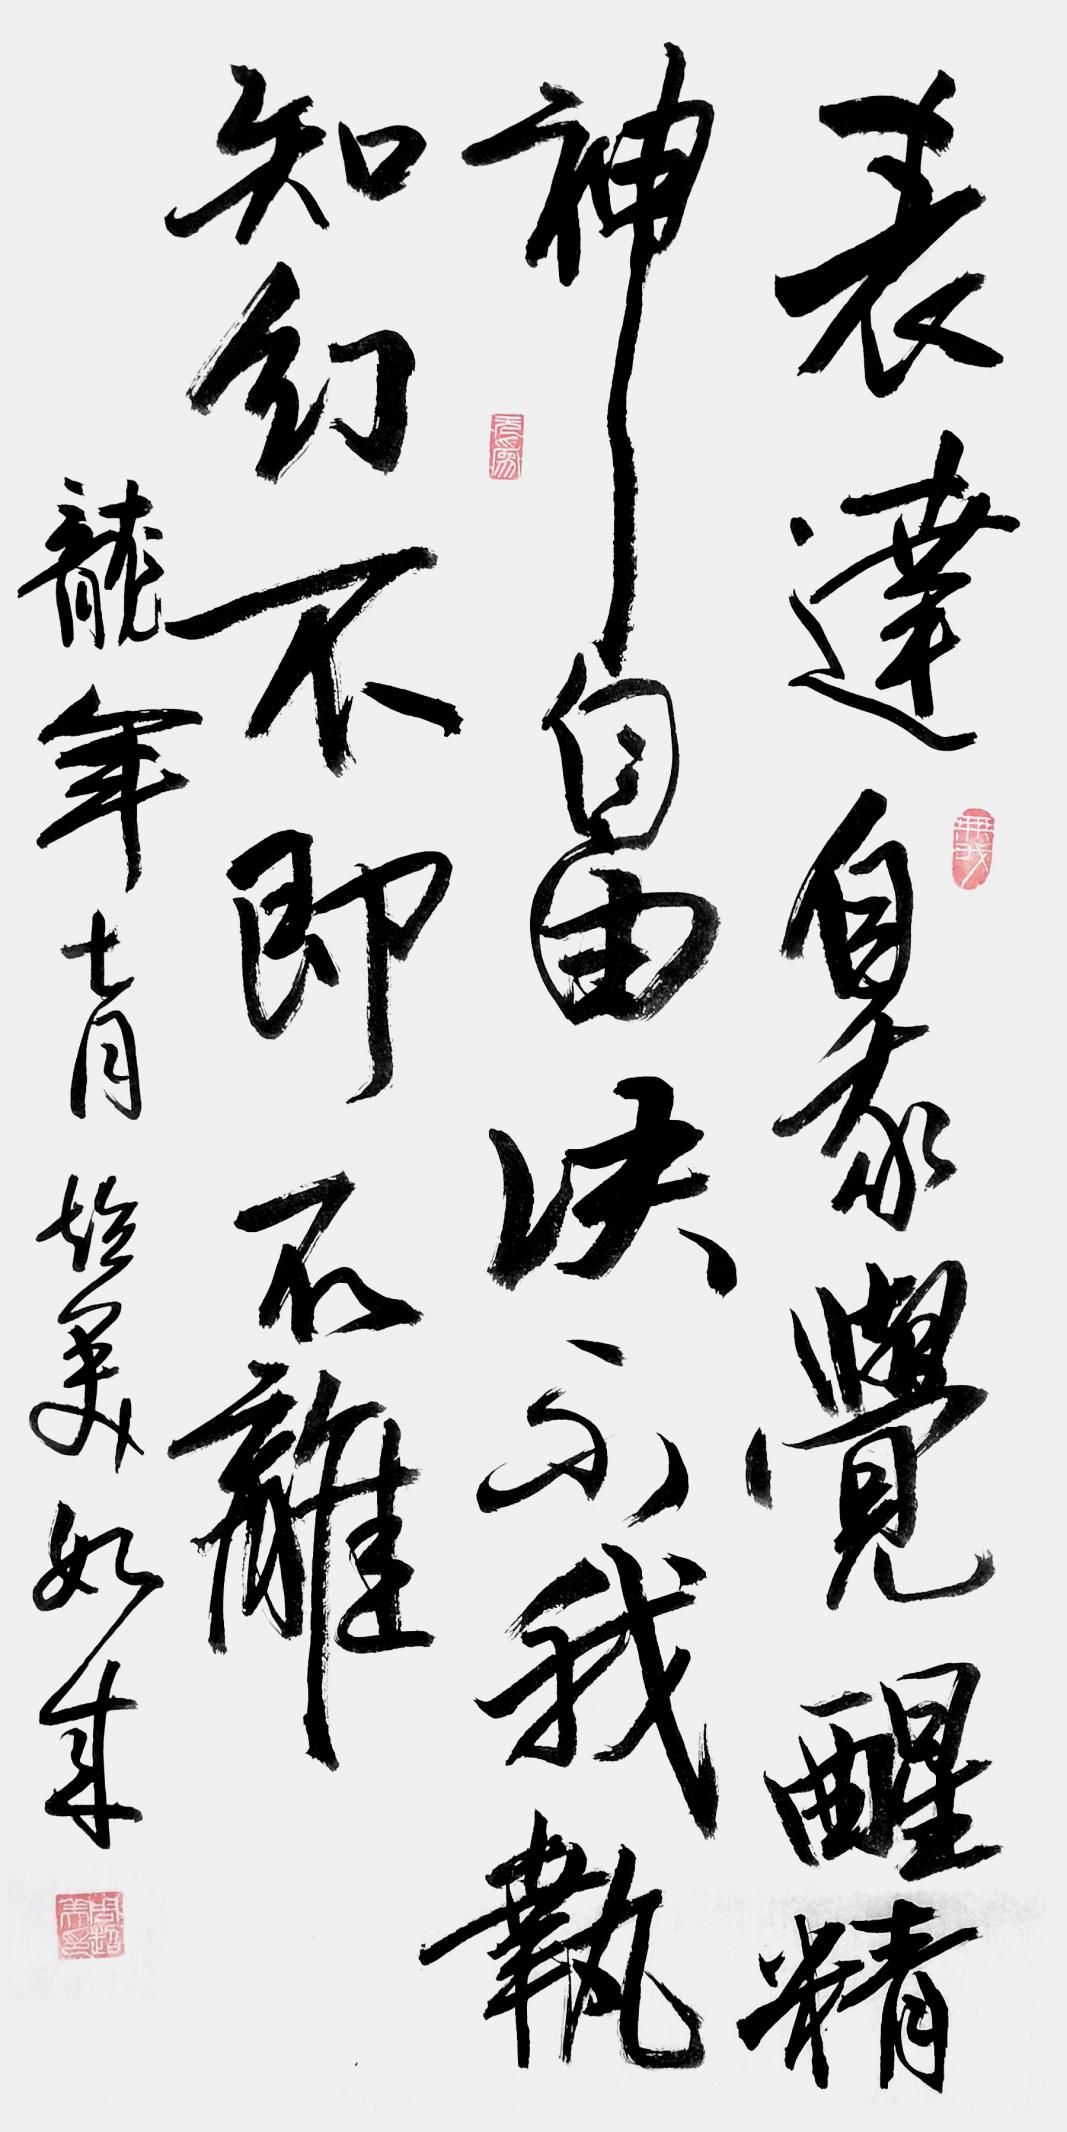 表達自我覺醒精
神自由決不我執
知幻不即不離
龍年七月超美如來
無我